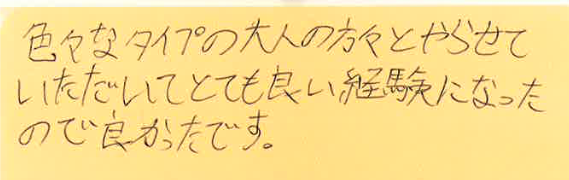 色々なタイプの大人の方々とやらせて
いただいてとても良い経験になった
ので良かったです。